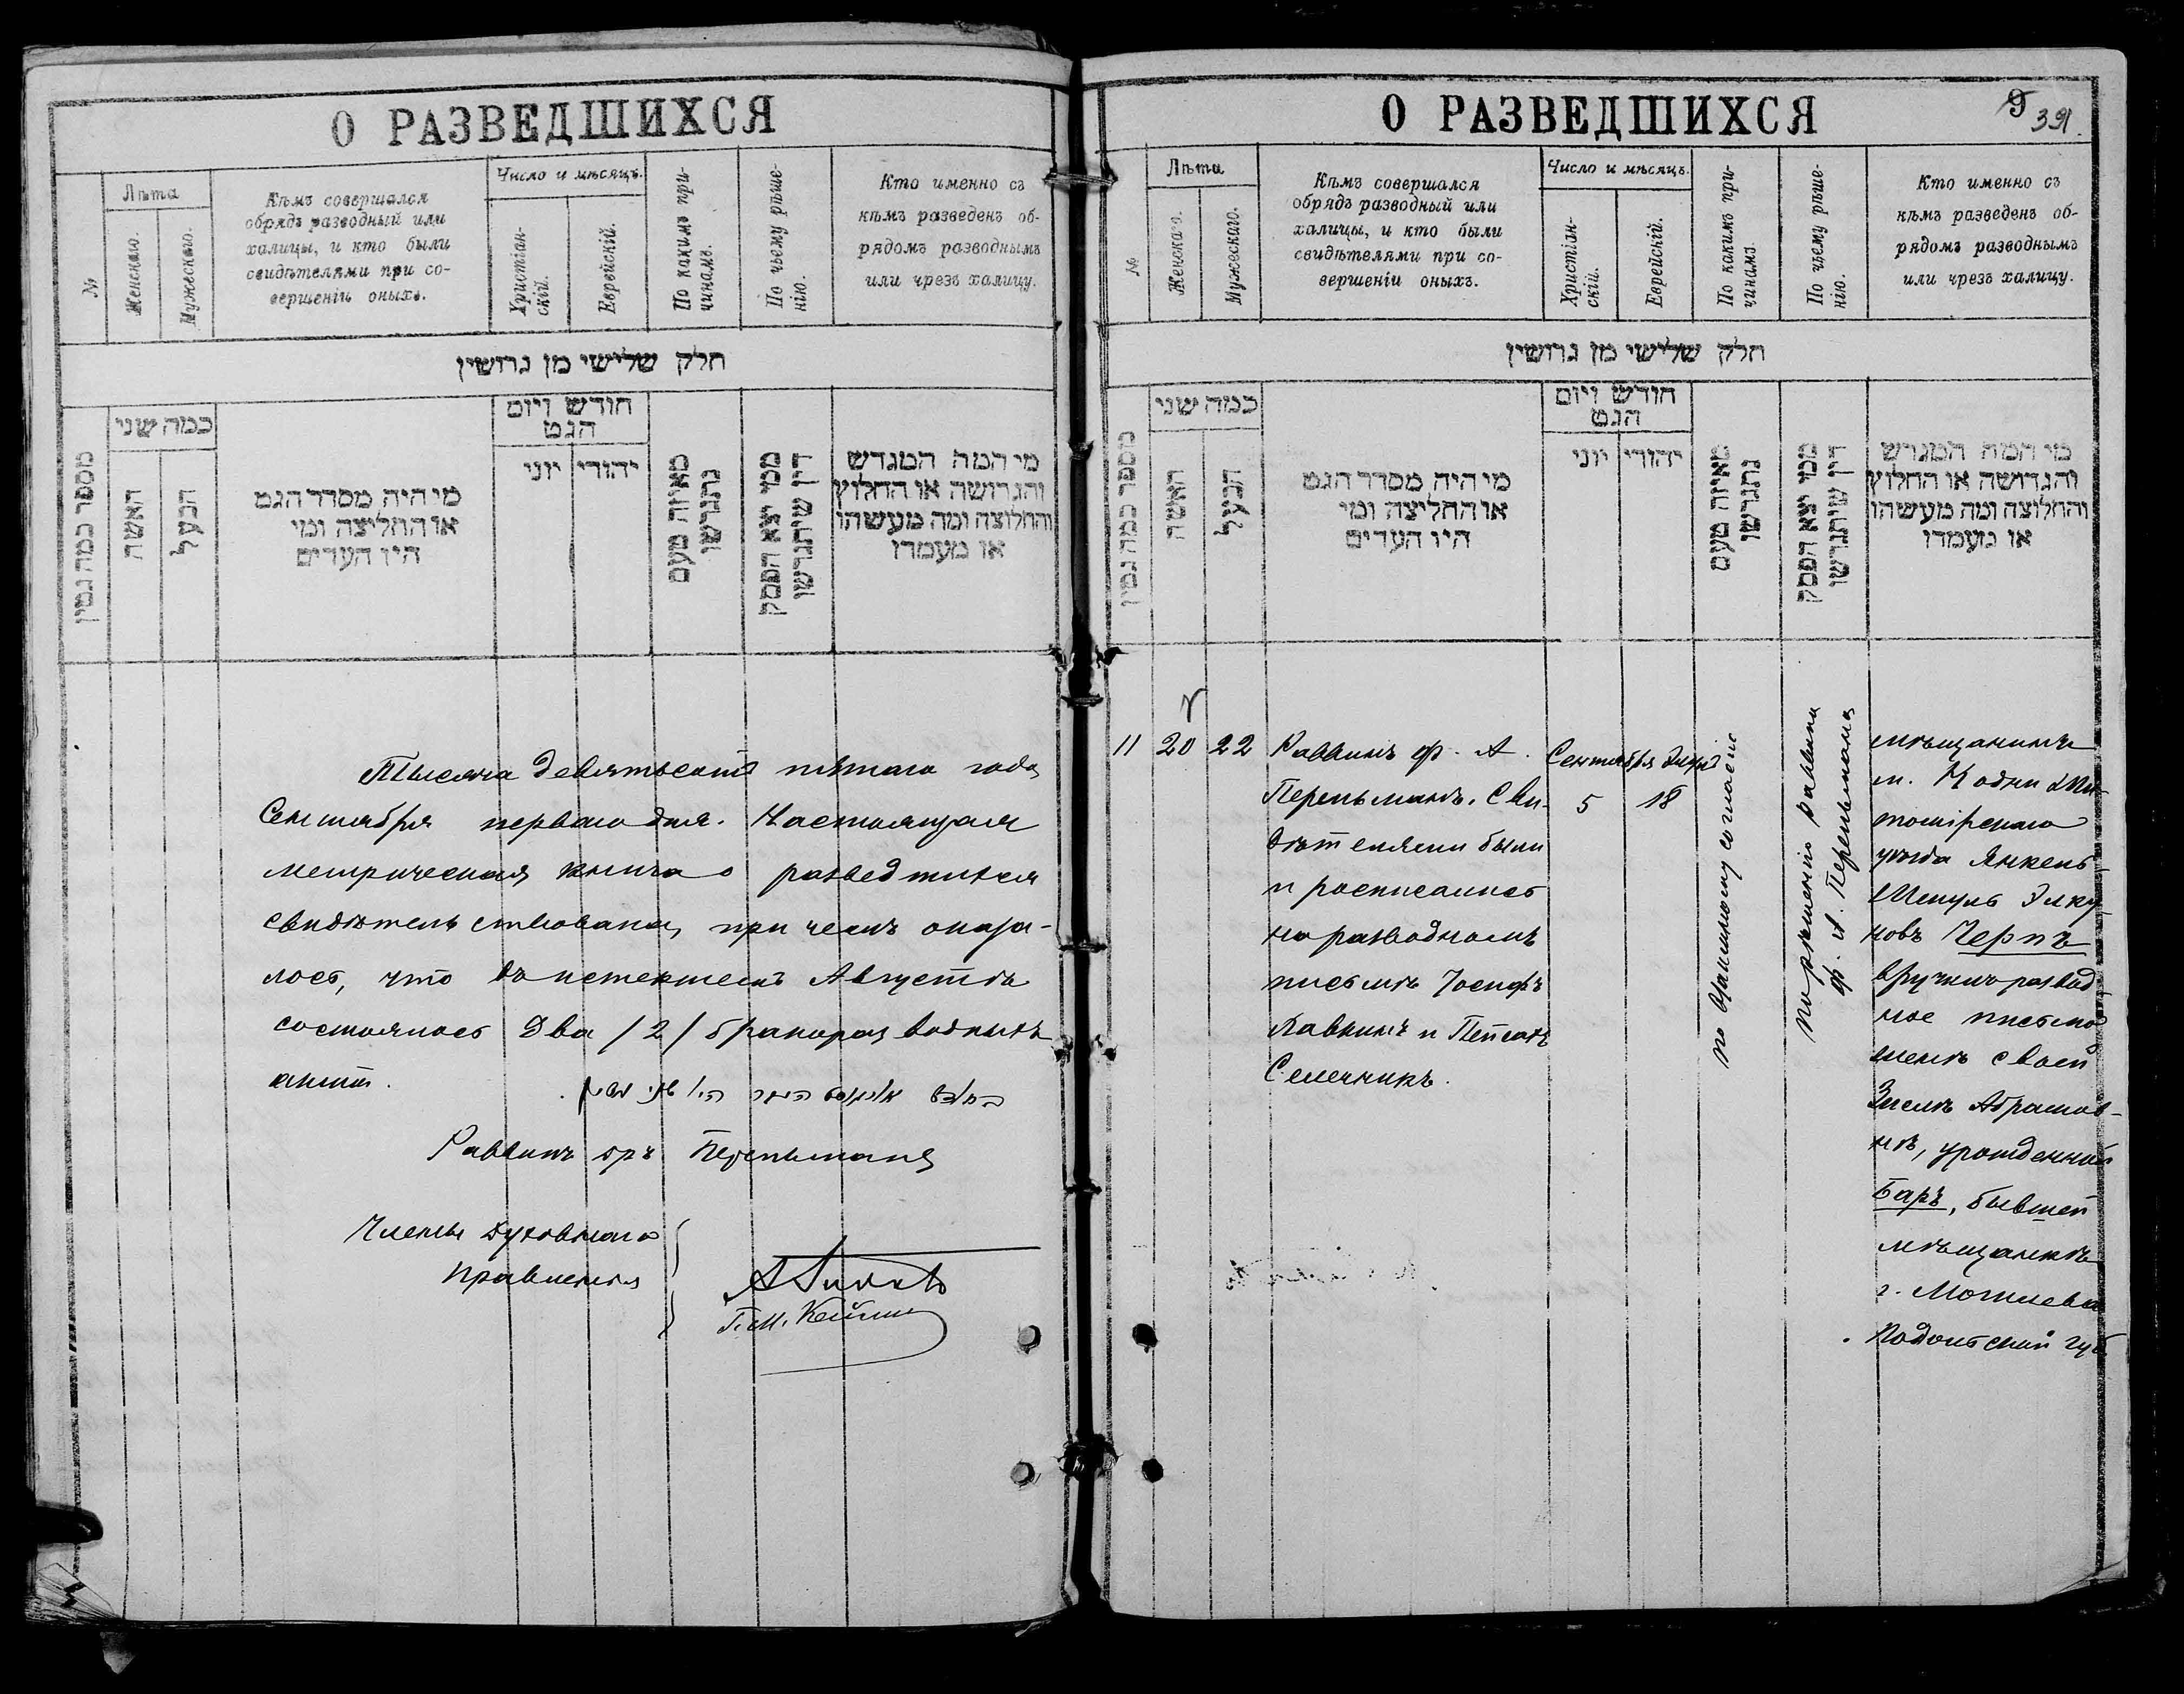 О РАЗВЕДШИХСЯ
№
Лѣта
Женскаго.
Мужескаго.
Кѣмъ совершался
обрядъ разводный или
халицы, и кто были
свидѣтелями при со-
вершеніи оныхъ.
Число и мѣсяцъ.
Христіан-
скій.
Еврейскій.
По какимъ при-
чинамъ.
По чьему рѣше-
нію.
Кто именно съ
кѣмъ разведенъ об-
рядомъ разводнымъ
или чрезъ халицу.
חלק שלישי מן גרושין
מספר כמה גטין
כמה שני
האשה
הבעל
מי היה מסדר הגט
או החליצה ומי
היו העדים
חודש ויום
הגט
יוני
יהודי
מאיזה טעם
נתגרשו
ממי יצא הפסק
דין שיתגרשו
מי המה המגרש
והגרושה או החלוץ
והחלוצה ומה מעשהו
או מעמדו
Тысяча девятьсотъ пятаго года
Сентября перваго дня. Настоящая
метрическая книга о разведшихся
свидѣтельствована, при чемъ оказа-
лось, что въ истекшемъ Августѣ
состоялось два /2/ бракоразводныхъ
акта.
Раввинъ др. Перельманъ
Члены Духовнаго
Правленія
О РАЗВЕДШИХСЯ
391.
№
Лѣта
Женскаго.
Мужескаго.
Кѣмъ совершался
обрядъ разводный или
халицы, и кто были
свидѣтелями при со-
вершеніи оныхъ.
Число и мѣсяцъ.
Христіан-
скій.
Еврейскій.
По какимъ при-
чинамъ.
По чьему рѣше-
нію.
Кто именно съ
кѣмъ разведенъ об-
рядомъ разводнымъ
или чрезъ халицу.
חלק שלישי מן גרושין
מספר כמה גטין
כמה שני
האשה
הבעל
מי היה מסדר הגט
או החליצה ומי
היו העדים
חודש ויום
הגט
יוני
יהודי
מאיזה טעם
נתגרשו
ממי יצא הפסק
דין שיתגרשו
מי המה המגרש
והגרושה או החלוץ
והחלוצה ומה מעשהו
או מעמדו
11 20 22
Раввинъ ф. А.
Перельманъ. Сви-
дѣтелями были
и росписались
на разводномъ
письмѣ Іосифъ
Лавкинъ и Пейсахъ
Селечникъ.
Сентября Элулъ
5 18
по взаимному согласію
по рѣшенію раввина
ф. А. Перельмана
мѣщанинъ
м. Кодни Жи-
томірскаго
уѣзда Янкель
Шмуль Элку-
новъ Черпъ
вручилъ развод-
ное письмо
женѣ своей
Зислѣ Абрамов-
нѣ, урожденной
Баръ, бывшей
мѣщанкѣ
г. Могилева
Подольской губ.